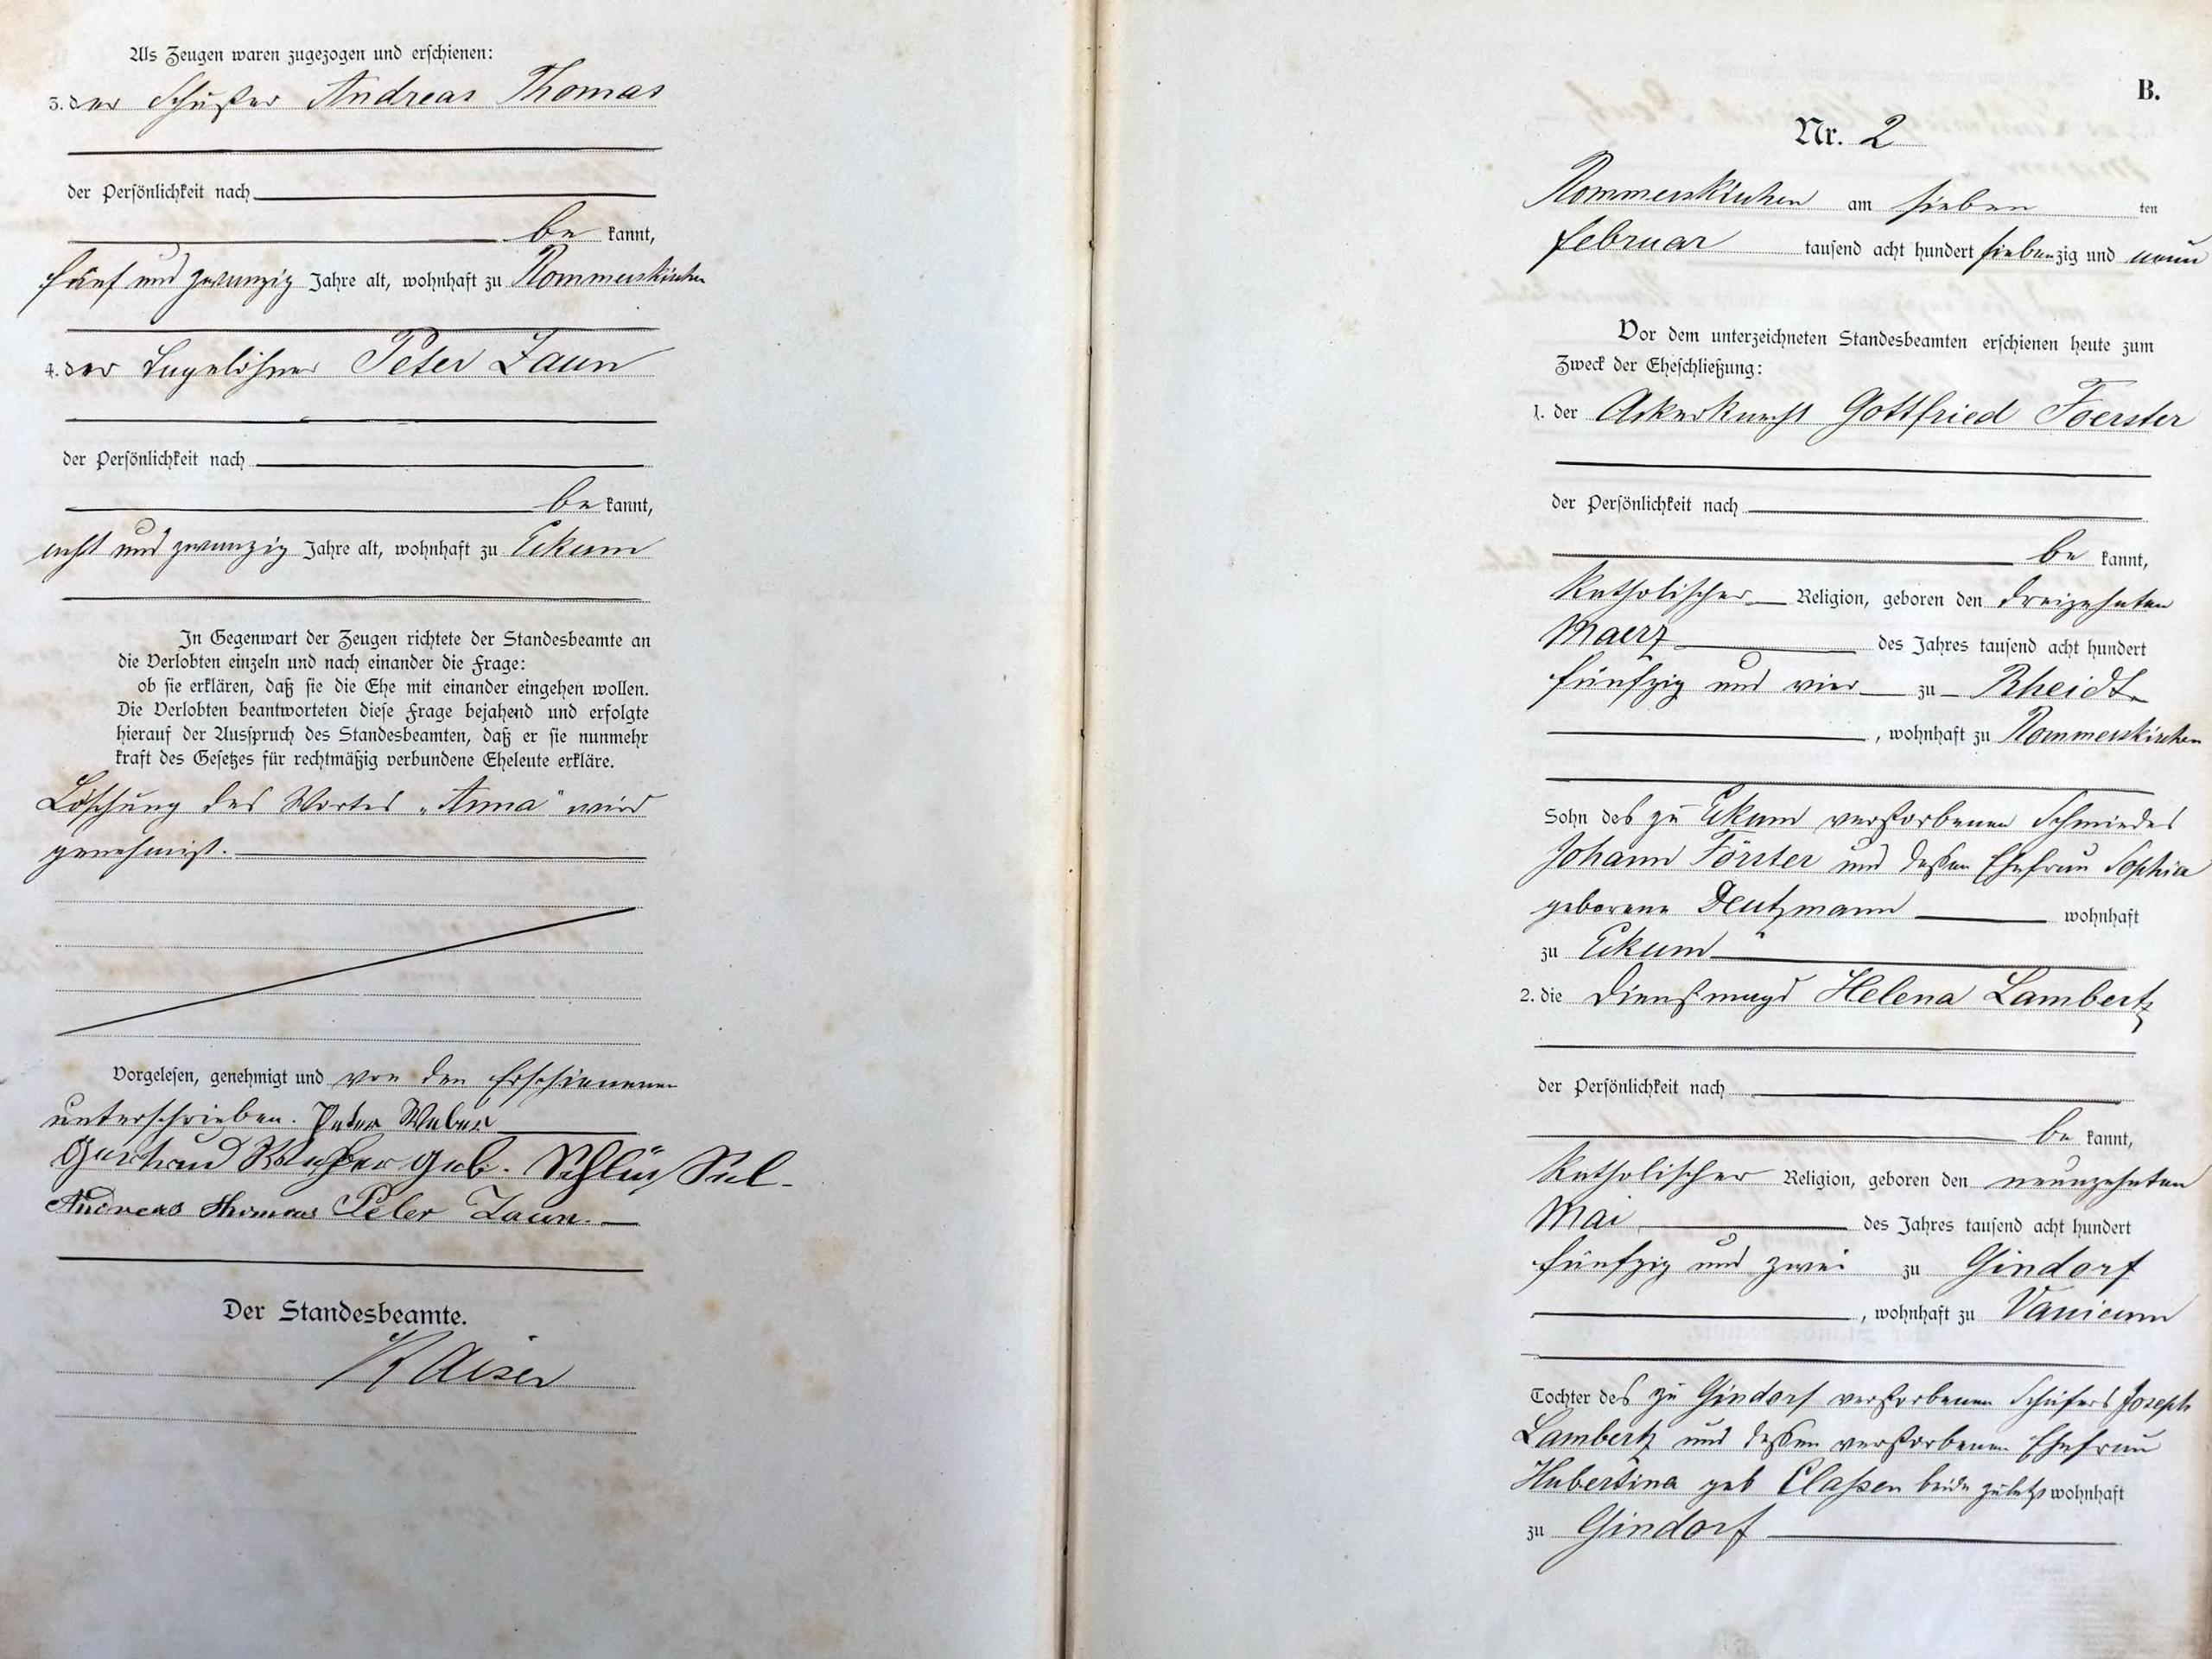 Als Zeugen waren zugezogen und erschienen:
3. der Schuster Andreas Thomas
der Persönlichkeit nach
be kannt,
fünf und zwanzig Jahre alt, wohnhaft zu Rommerskirchen
4. der Tagelöhner Peter Zaun
der Persönlichkeit nach
be kannt,
acht und zwanzig Jahre alt, wohnhaft zu Eckum
In Gegenwart der Zeugen richtete der Standesbeamte an
die Verlobten einzeln und nach einander die Frage:
ob sie erklären, daß sie die Ehe mit einander eingehen wollen.
Die Verlobten beantworteten diese Frage bejahend und erfolgte
hierauf der Ausspruch des Standesbeamten, daß er sie nunmehr
kraft des Gesetzes für rechtmäßig verbundene Eheleute erkläre.
Löschung des Wortes „Anna" wird
genehmigt.
Vorgelesen, genehmigt und von den Erschienenen
unterschrieben. Peter Weber
Gertrud geb.
Andreas Thomas Peter Zaun.
Der Standesbeamte.
Kaiser
B.
Nr. 2
Rommerskirchen am sieben ten
Februar tausend acht hundert siebenzig und neun
Vor dem unterzeichneten Standesbeamten erschienen heute zum
Zweck der Eheschließung:
1. der Ackerknecht Gottfried Foerster
der Persönlichkeit nach
be kannt,
katholischer Religion, geboren den dreizehnten
Maerz des Jahres tausend acht hundert
fünfzig und vier zu Rheidt
, wohnhaft zu Rommerskirchen
Sohn des zu Eckum verstorbenen Schmiedes
Johann Förster und dessen Ehefrau Sophia
geborene Deutzmann wohnhaft
zu Eckum
2. die Dienstmagd Helena Lambertz
der Persönlichkeit nach
be kannt,
katholischer Religion, geboren den neunzehnten
Mai des Jahres tausend acht hundert
fünfzig und zwei zu Gindorf
, wohnhaft zu Vanicum
Tochter des zu Gindorf verstorbenen Schäfers Joseph
Lambertz und dessen verstorbenen Ehefrau
Hubertina geb Claßen beide zuletzt wohnhaft
zu Gindorf